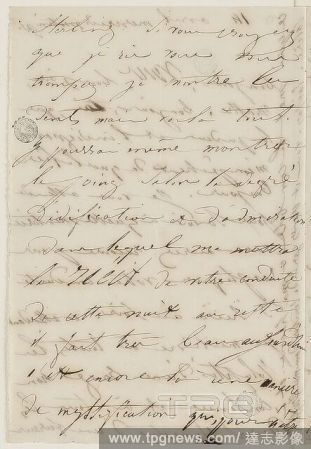 si vous croyez
que je ris vous vous
trompez je montre les
dents mais voilà tout.
je pourrai même montrer
le poing selon le degré
d'édification et d'admiration
dans lequel me mettra
le récit de votre conduite
de cette nuit au reste
il fait très beau aujourd'hui
c'est encore là une manière
de mystification que
www.tpgnews.com/達志影像